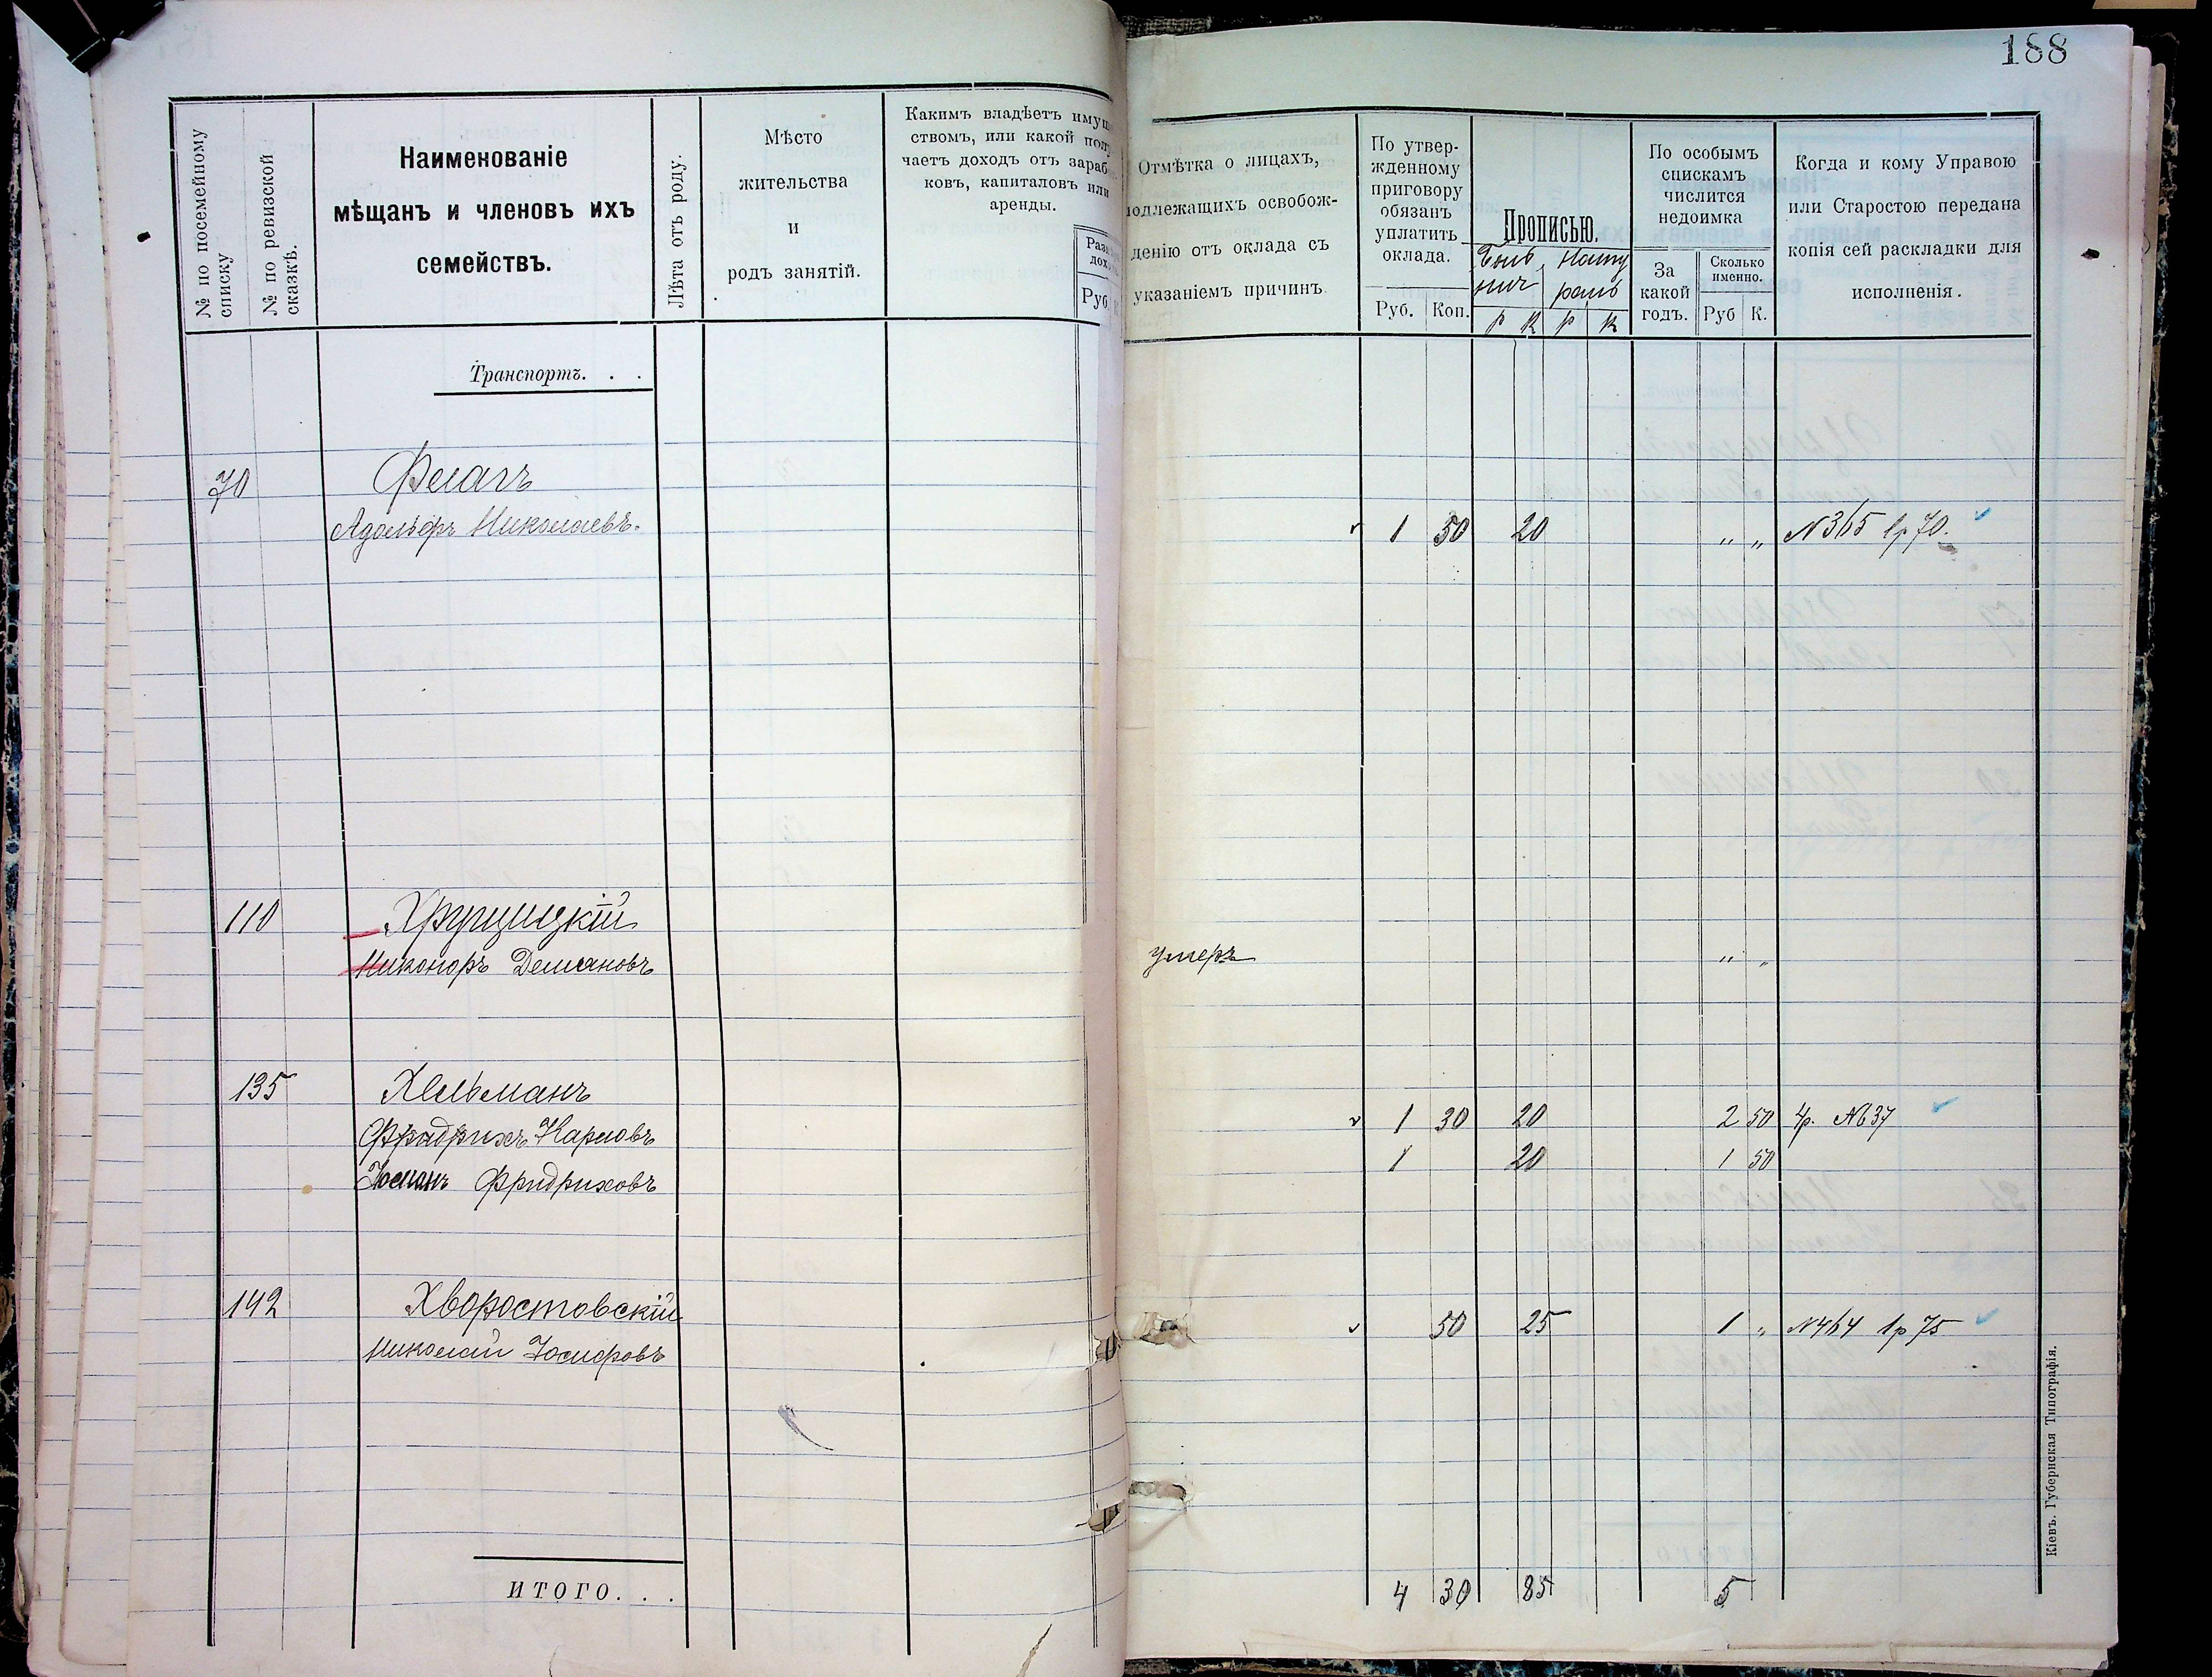 188
№ по посемейному списку
№ по ревизской сказкѣ.
Наименованіе
мѣщанъ и членовъ ихъ
семействъ.
Лѣта отъ роду.
Мѣсто
жительства
и
родъ занятій.
Какимъ владѣетъ имущ
ствомъ, или какой полу
чаетъ доходъ отъ зараб
ковъ, капиталовъ или
аренды.
Руб.
Отмѣтка о лицахъ,
подлежащихъ освобож-
денію отъ оклада съ
указаніемъ причинъ
По утвер-
жденному
приговору
обязанъ
уплатить
оклада.
Руб. Коп.
Прописью.
р к р к
По особымъ
спискамъ
числится
недоимка
За
какой
годъ.
Сколько
именно.
Руб К.
Когда и кому Управою
или Старостою передана
копія сей раскладки для
исполненія.
Транспортъ. . .
70 Флагъ
Адольфъ Николаевъ. 1 50 20 " " N365 1р 70.
110 Хрущицкій
Никоноръ Демяновъ умеръ " "
135 Хельманъ
Фридрихъ Карловъ 1 30 20 2 50 4р. №37
Фридриховъ 1 20 1 50
142 Хворостовскій
Николай Іосифовъ 50 25 1 " N464 1р 75
ИТОГО. . . 4 30 85 5
Кіевъ. Губернская Типографія.